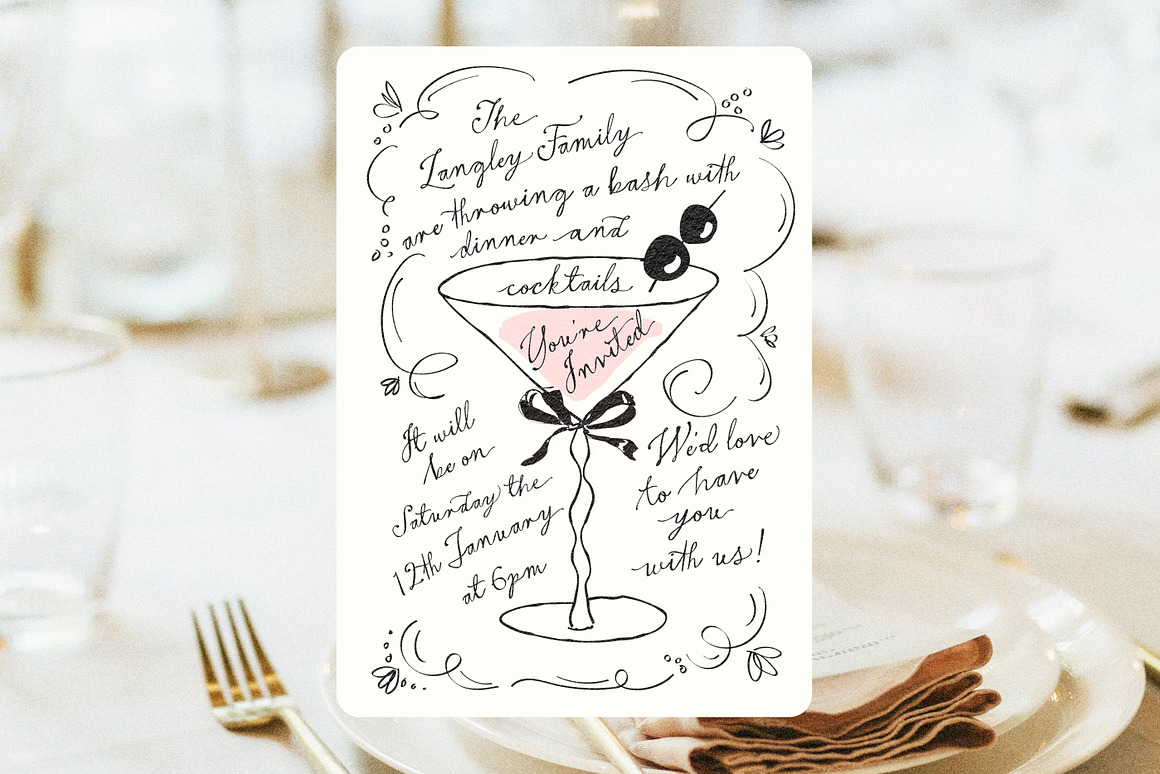 The
Langley Family
are throwing a bash with
dinner and
cocktails
You're
Invited
It will
be on
Saturday the
12th January
at 6pm
We'd love
to have
you
with us!